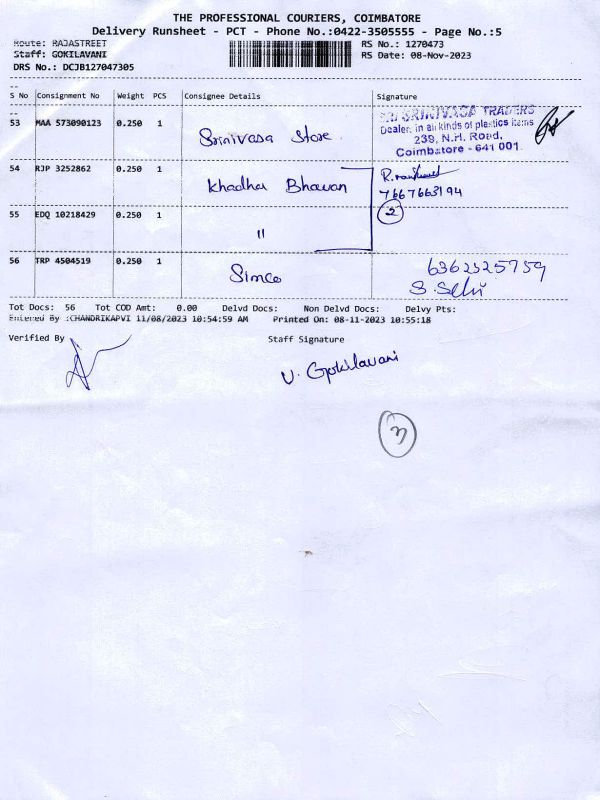 THE PROFESSIONAL COURIERS, COIMBATORE
Delivery Runsheet - PCT - Phone No.:0422-3505555 - Page No.:5
Route: RAJASTREET
RS No.: 1270473
Staff: GOKILAVANI
RS Date: 08-Nov-2023
DRS No.: DCJB127047305
S No Consignment No Weight PCS Consignee Details Signature
53 MAA 573090123 0.250 1 Srinivasa Store
SRI SRINIVASA TRADERS
Dealer. in all kinds of plastics items
239, N.H. Road,
Coimbatore - 641 001.
54 RJP 3252862 0.250 1 Khadhar Bhavan
7667663194
55 EDQ 10218429 0.250 1 "
2
56 TRP 4504519 0.250 1 Simco 6362525759
S. Selvi
Tot Docs: 56 Tot COD Amt: 0.00 Delvd Docs: Non Delvd Docs: Delvy Pts:
Entered By :CHANDRIKAPVI 11/08/2023 10:54:59 AM Printed On: 08-11-2023 10:55:18
Verified By Staff Signature
V. Gokilavani
3